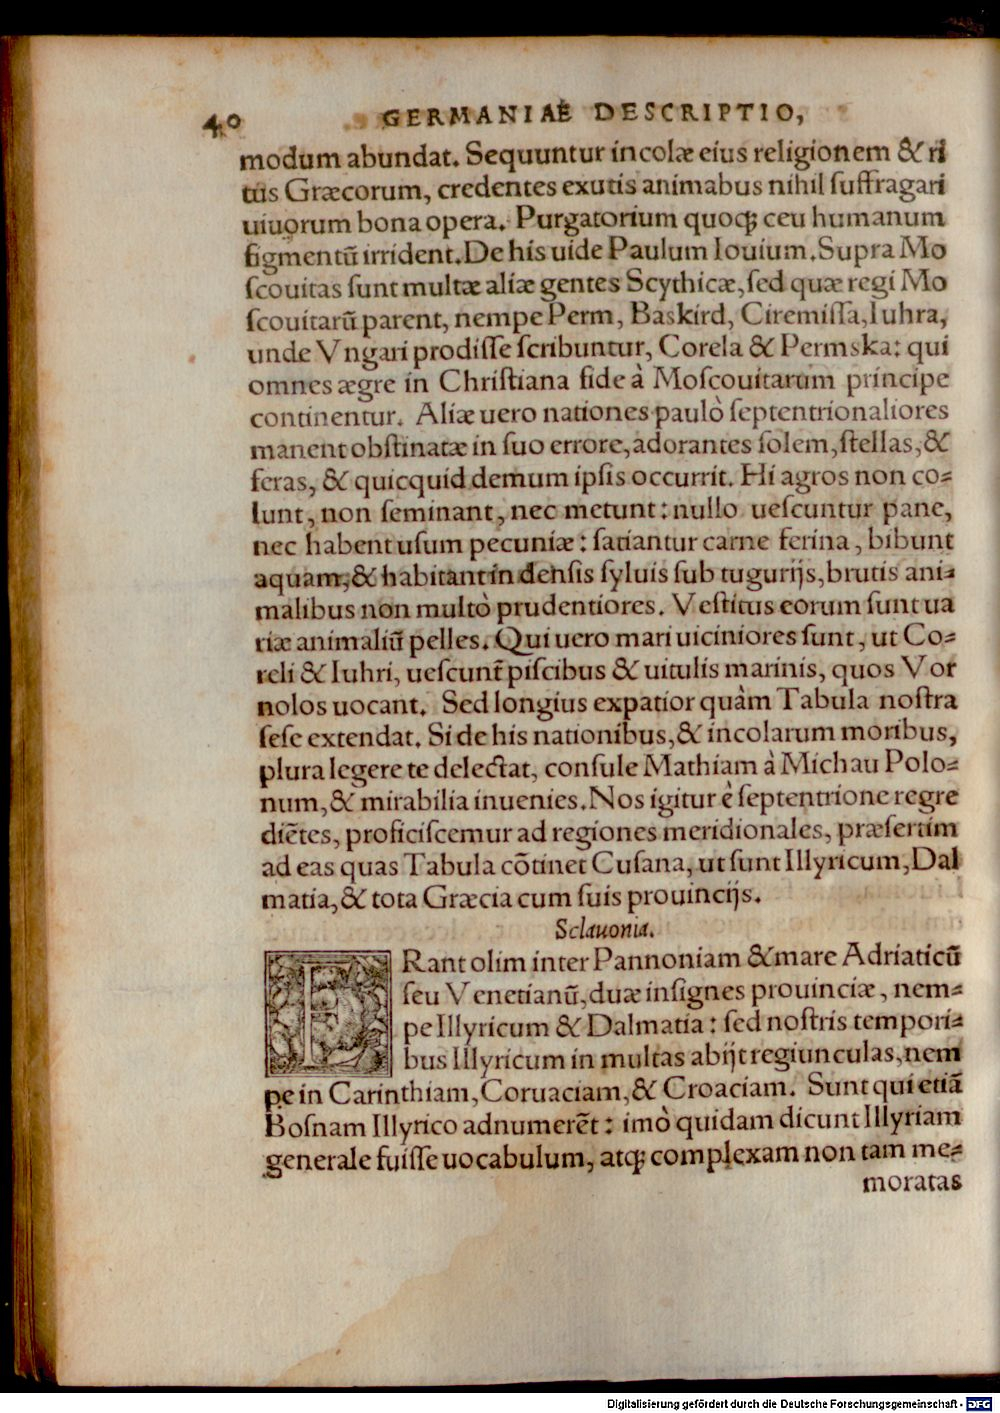 40 GERMANIAE DESCRIPTIO,
modum abundat. Sequuntur incolæ eius religionem & ri
tus Græcorum, credentes exutis animabus nihil ſuffragari
uiuorum bona opera. Purgatorium quoqꝫ ceu humanum
figmentū irrident. De his uide Paulum Iouium. Supra Mo
ſcouitas ſunt multæ aliæ gentes Scythicæ, ſed quæ regi Mo
ſcouitarū parent, nempe Perm, Baskird, Ciremiſſa, Iuhra,
unde Vngari prodiſſe ſcribuntur, Corela & Permska: qui
omnes ægre in Chriſtiana fide à Moſcouitarum principe
continentur. Aliæ uero nationes paulò ſeptentrionaliores
manent obſtinatæ in ſuo errore, adorantes ſolem, ſtellas, &
feras, & quicquid demum ipſis occurrit. Hi agros non co-
lunt, non ſeminant, nec metunt: nullo ueſcuntur pane,
nec habent uſum pecuniæ: ſatiantur carne ferina, bibunt
aquam, & habitant in denſis ſyluis ſub tugurijs, brutis ani-
malibus non multò prudentiores. Veſtitus eorum ſunt ua
riæ animaliū pelles. Qui uero mari uiciniores ſunt, ut Co-
reli & Iuhri, ueſcunt̃ piſcibus & uitulis marinis, quos Vor
nolos uocant. Sed longius expatior quàm Tabula noſtra
ſeſe extendat. Si de his nationibus, & incolarum moribus,
plura legere te delectat, conſule Mathiam à Michau Polo-
num, & mirabilia inuenies. Nos igitur è ſeptentrione regre
diētes, proficiſcemur ad regiones meridionales, præſertim
ad eas quas Tabula cōtinet Cuſana, ut ſunt Illyricum, Dal
matia, & tota Græcia cum ſuis prouincijs.
Sclauonia.
ERant olim inter Pannoniam & mare Adriaticū
ſeu Venetianū, duæ inſignes prouinciæ, nem-
pe Illyricum & Dalmatia: ſed noſtris tempori-
bus Illyricum in multas abijt regiunculas, nem
pe in Carinthiam, Coruaciam, & Croaciam. Sunt qui etiā
Boſnam Illyrico adnumerēt: imò quidam dicunt Illyriam
generale fuiſſe uocabulum, atqꝫ complexam non tam me-
moratas
Digitalisierung gefördert durch die Deutsche Forschungsgemeinschaft - DFG